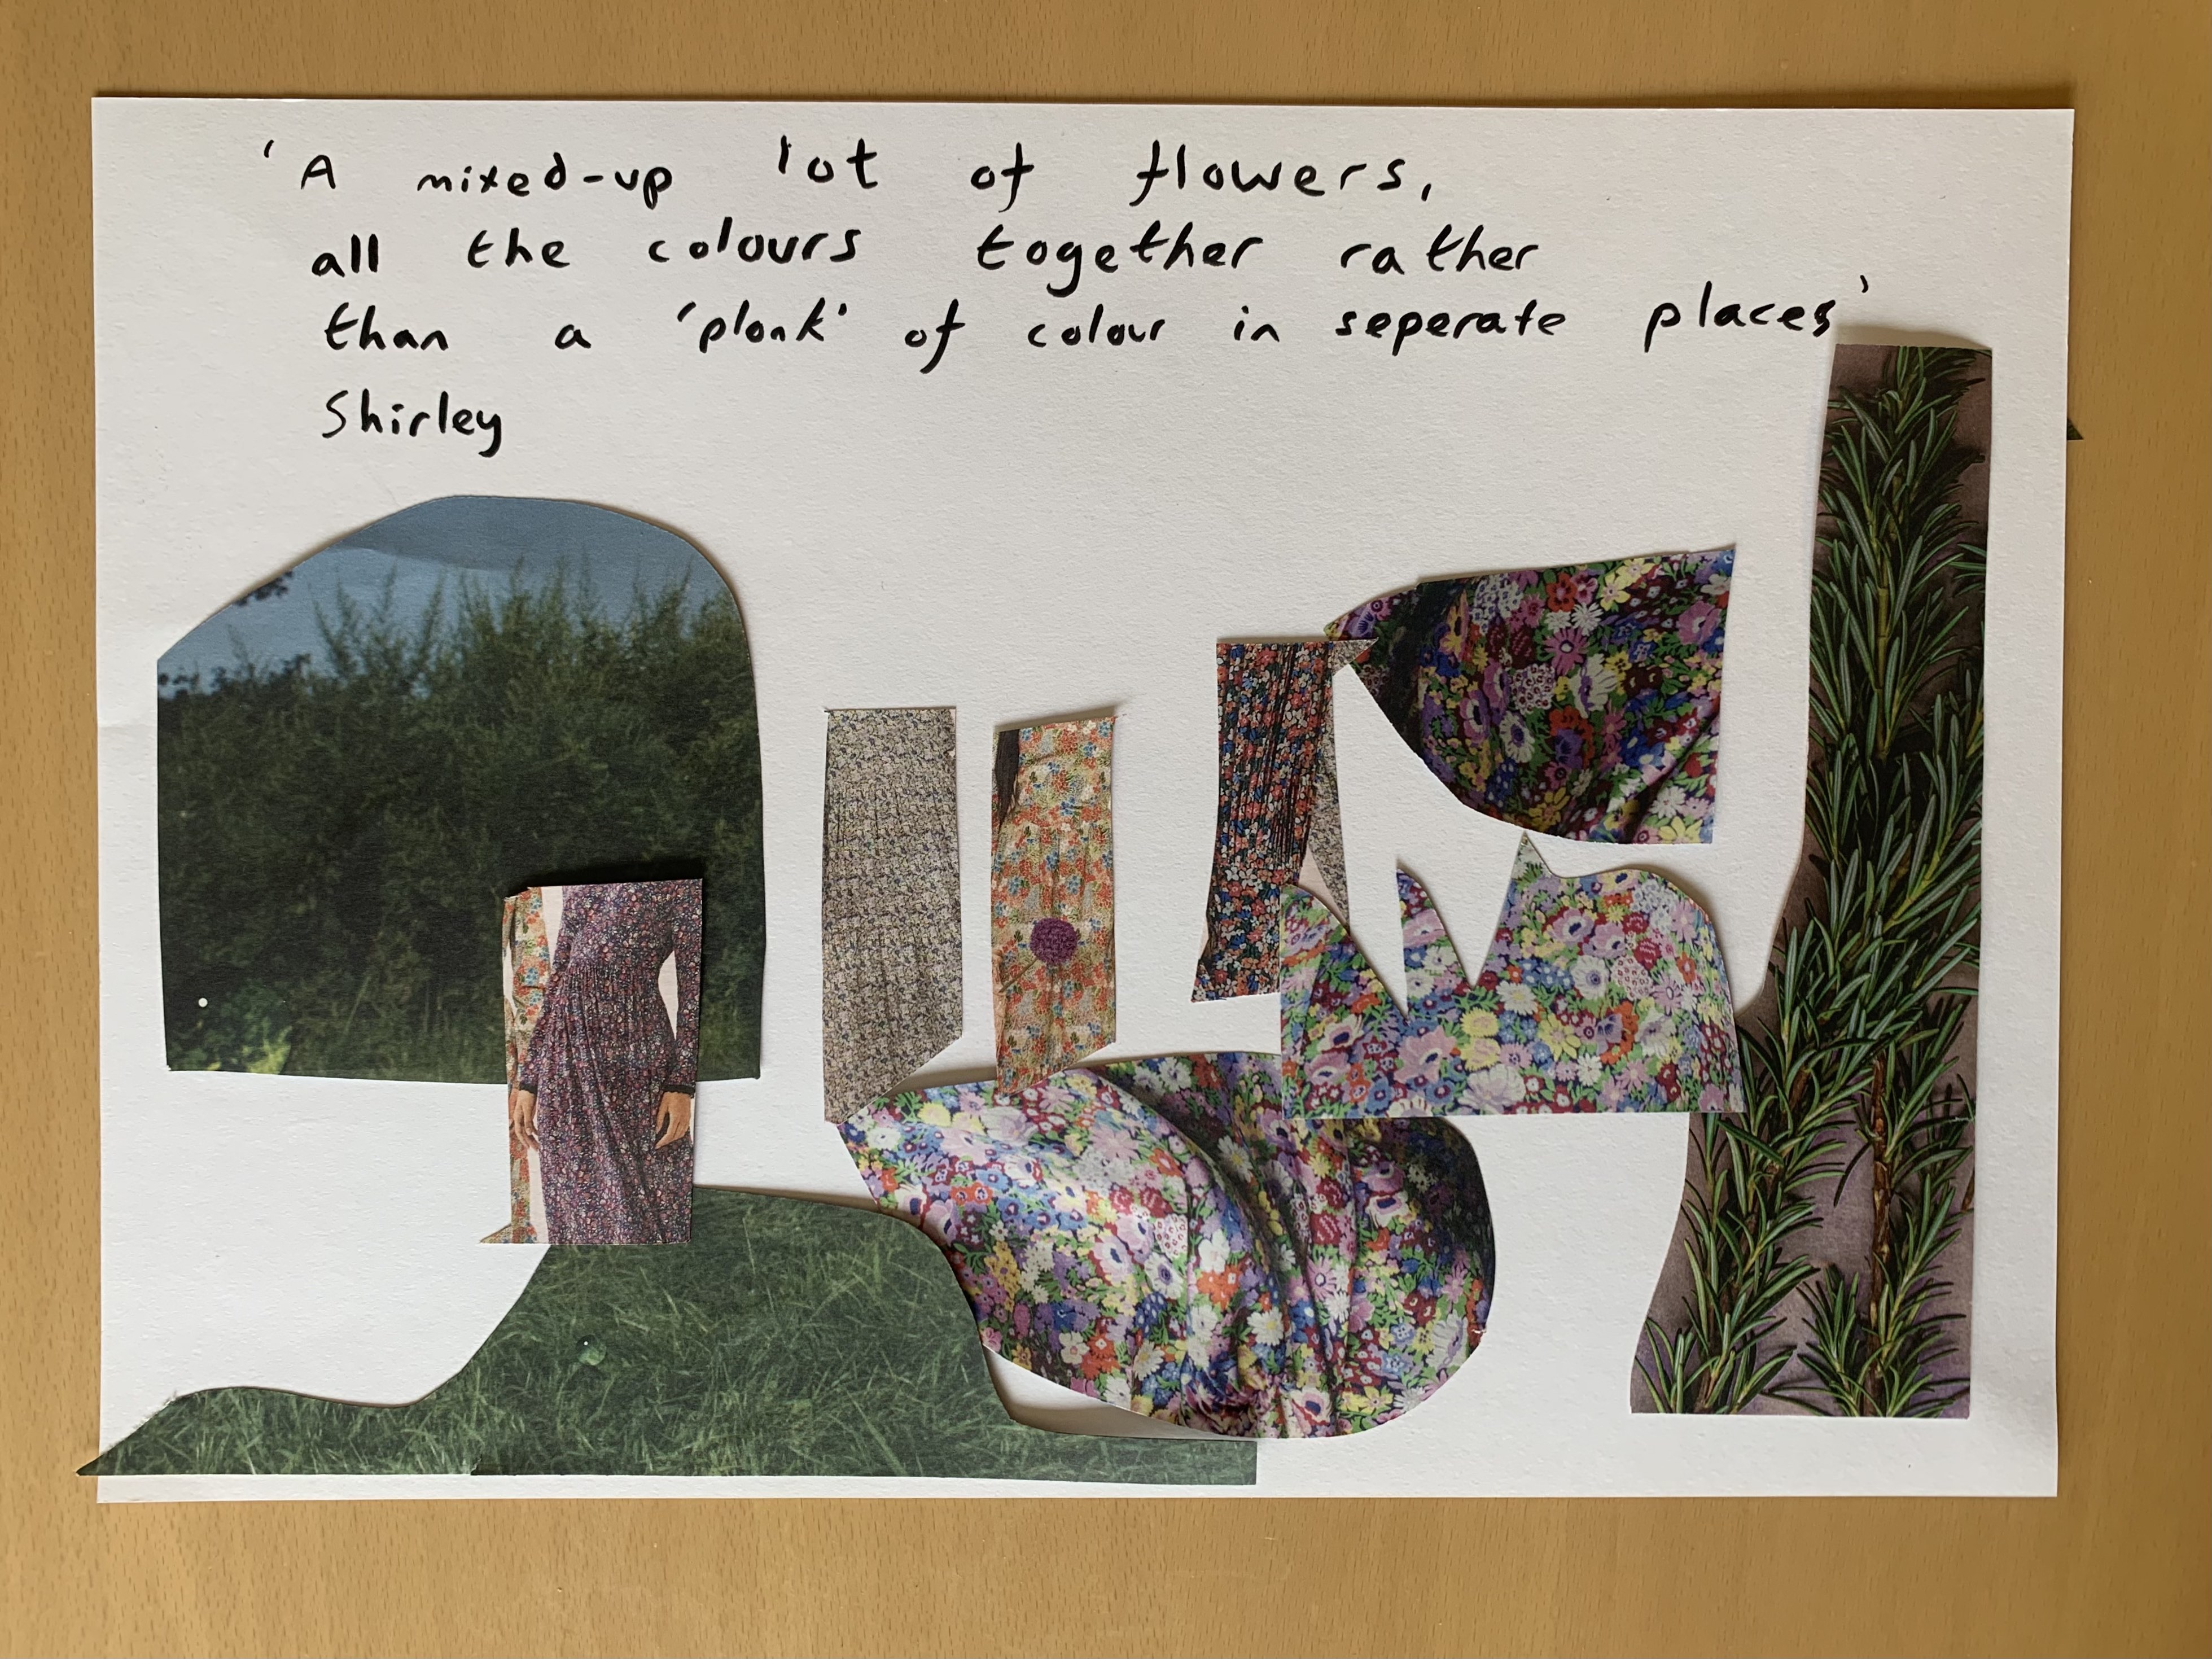 'A mixed-up lot of flowers,
all the colours together rather
than a 'plonk' of colour in seperate places'
Shirley